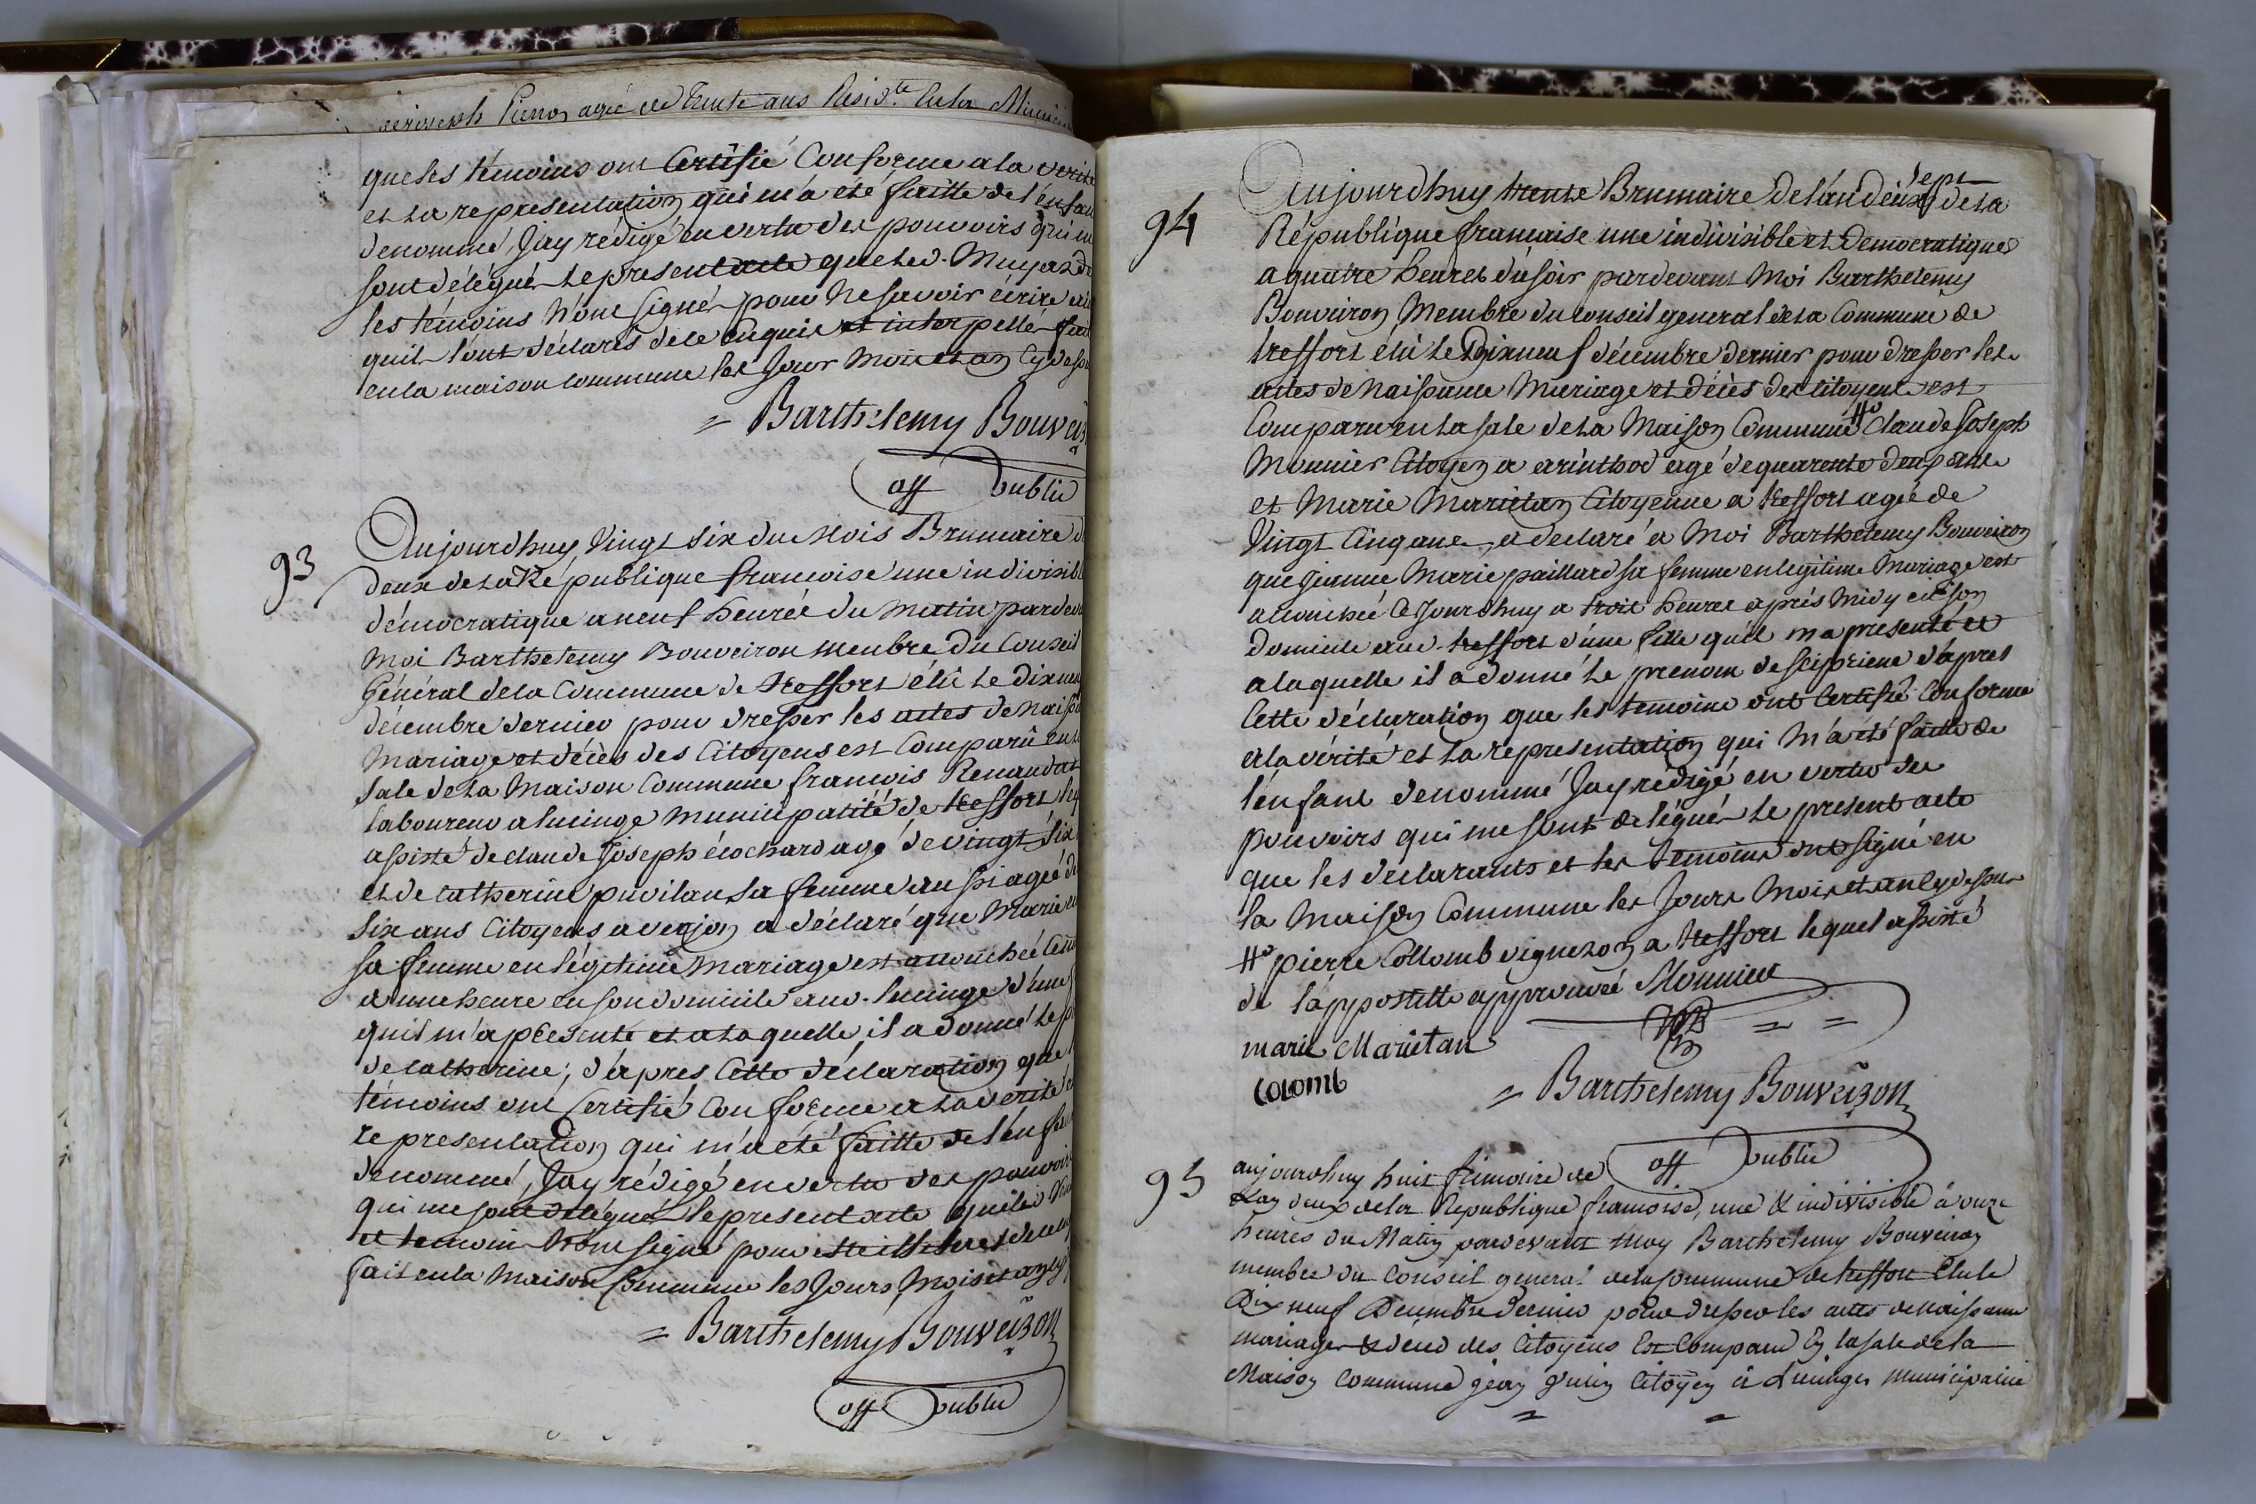 agé de trente ans Resid.te
que les témoins ont Certifié Conforme a la verité
et la representation qui m'a été faitte de l'enfan
denommé, Jay rédigé en vertu des pouvoirs qui m
sont délégués le present acte que led. Muyard
les témoins n'ont signés pour ne savoir écrire ain
quil l'ont déclarés de ce Enquis et interpellés fait
en la maison commune les Jour Mois et an Cy dess
= Barthelemy Bouvei
off publie
93
Aujourdhuy Vingt six du Mois Brumaire d
deux de la République francoise une indivisibl
démocratique a neuf heurée du matin pardev
Moi Barthelemy Bouveiron membre du Conseil
Général de la Commune de treffort élû le dix neu
décembre dernier pour dresser les actes de naiss
Mariage et décès des Citoyens est Comparû en l
sale de la Maison Commune francois Renaudat
laboureur a lucinge municipalité de treffort
assisté de claude Joseph écochard agé de vingt six
et de catherine puvilan sa femme aussi agée de
six ans Citoyens a verjon a déclaré que Marie
sa femme en légitime mariage est accouchée
a une heure en son domicile aud. lucinge d'une
quil m'a présenté et a laquelle il a donné le p
de catherine, d'apres Cette déclaration que
témoins ont Certifié Conforme a la verité e
representation qui m'a été faitte de l'enfan
denommé, Jay rédigé en vertu des pouvoirs
qui me sont délégués le present acte
et temoin n'ont signé pour
fait en la maison Commune les Jours, Mois et an cy
= Barthelemy Bouveiron
off publie
94
Aujourdhuy trente Brumaire de l'an deux sept de la
République francaise une indivisible et democratique
a quatre heures du soir pardevant Moi Barthelemy
Bouveiron Membre du conseil general de la Commune de
treffort élû le Dixneuf décembre dernier pour dresser les
actes de Naissance Mariage et décès des citoyens est
Comparu en la sale de la Maison Commune # Claude Joseph
Monnier Citoyen a arinthod agé de quarente deux ans
et Marie Marietan Citoyenne a treffort agée de
Vingt Cinq ans, a declaré a Moi Barthelemy Bouveiron
que jeanne Marie paillard sa femme en legitime Mariage est
accouchée Ce Jourdhuy a trois heures aprés Midy en son
domicile aud. treffort d'une fille qu'il m'a presenté et
a laquelle il a donné le prenom de scipiriene d'apres
Cette déclaration que les temoins ont Certifié Conforme
a la vérité et la representation qui M'a été faitte de
l'enfant denommé Jay rédigé en vertu des
pouvoirs qui me sont delégués le present acte
que les declarants et les temoins ont signé en
la Maison Commune les Jours Mois et an cy dessus
# pierre Collomb vigneron a treffort lequel assisté
de l'appostille approuvée Monnier
marie Marietan
COLOMB
= Barthelemy Bouveiron
off publie
95
aujourdhuy huit frimaire de
Lan deux de la Republique francoise, une & indivisible à onze
heures du Matin pardevant Moy Barthelemy Bouveiron
membre du Conseil general de la Commune de treffort Elu le
Dix neuf Decembre dernier pour dresser les actes de Naissance
mariages & deces des Citoyens Est Comparu En la sale de la
Maison Commune jean Citoyen à Lucinges municipalité